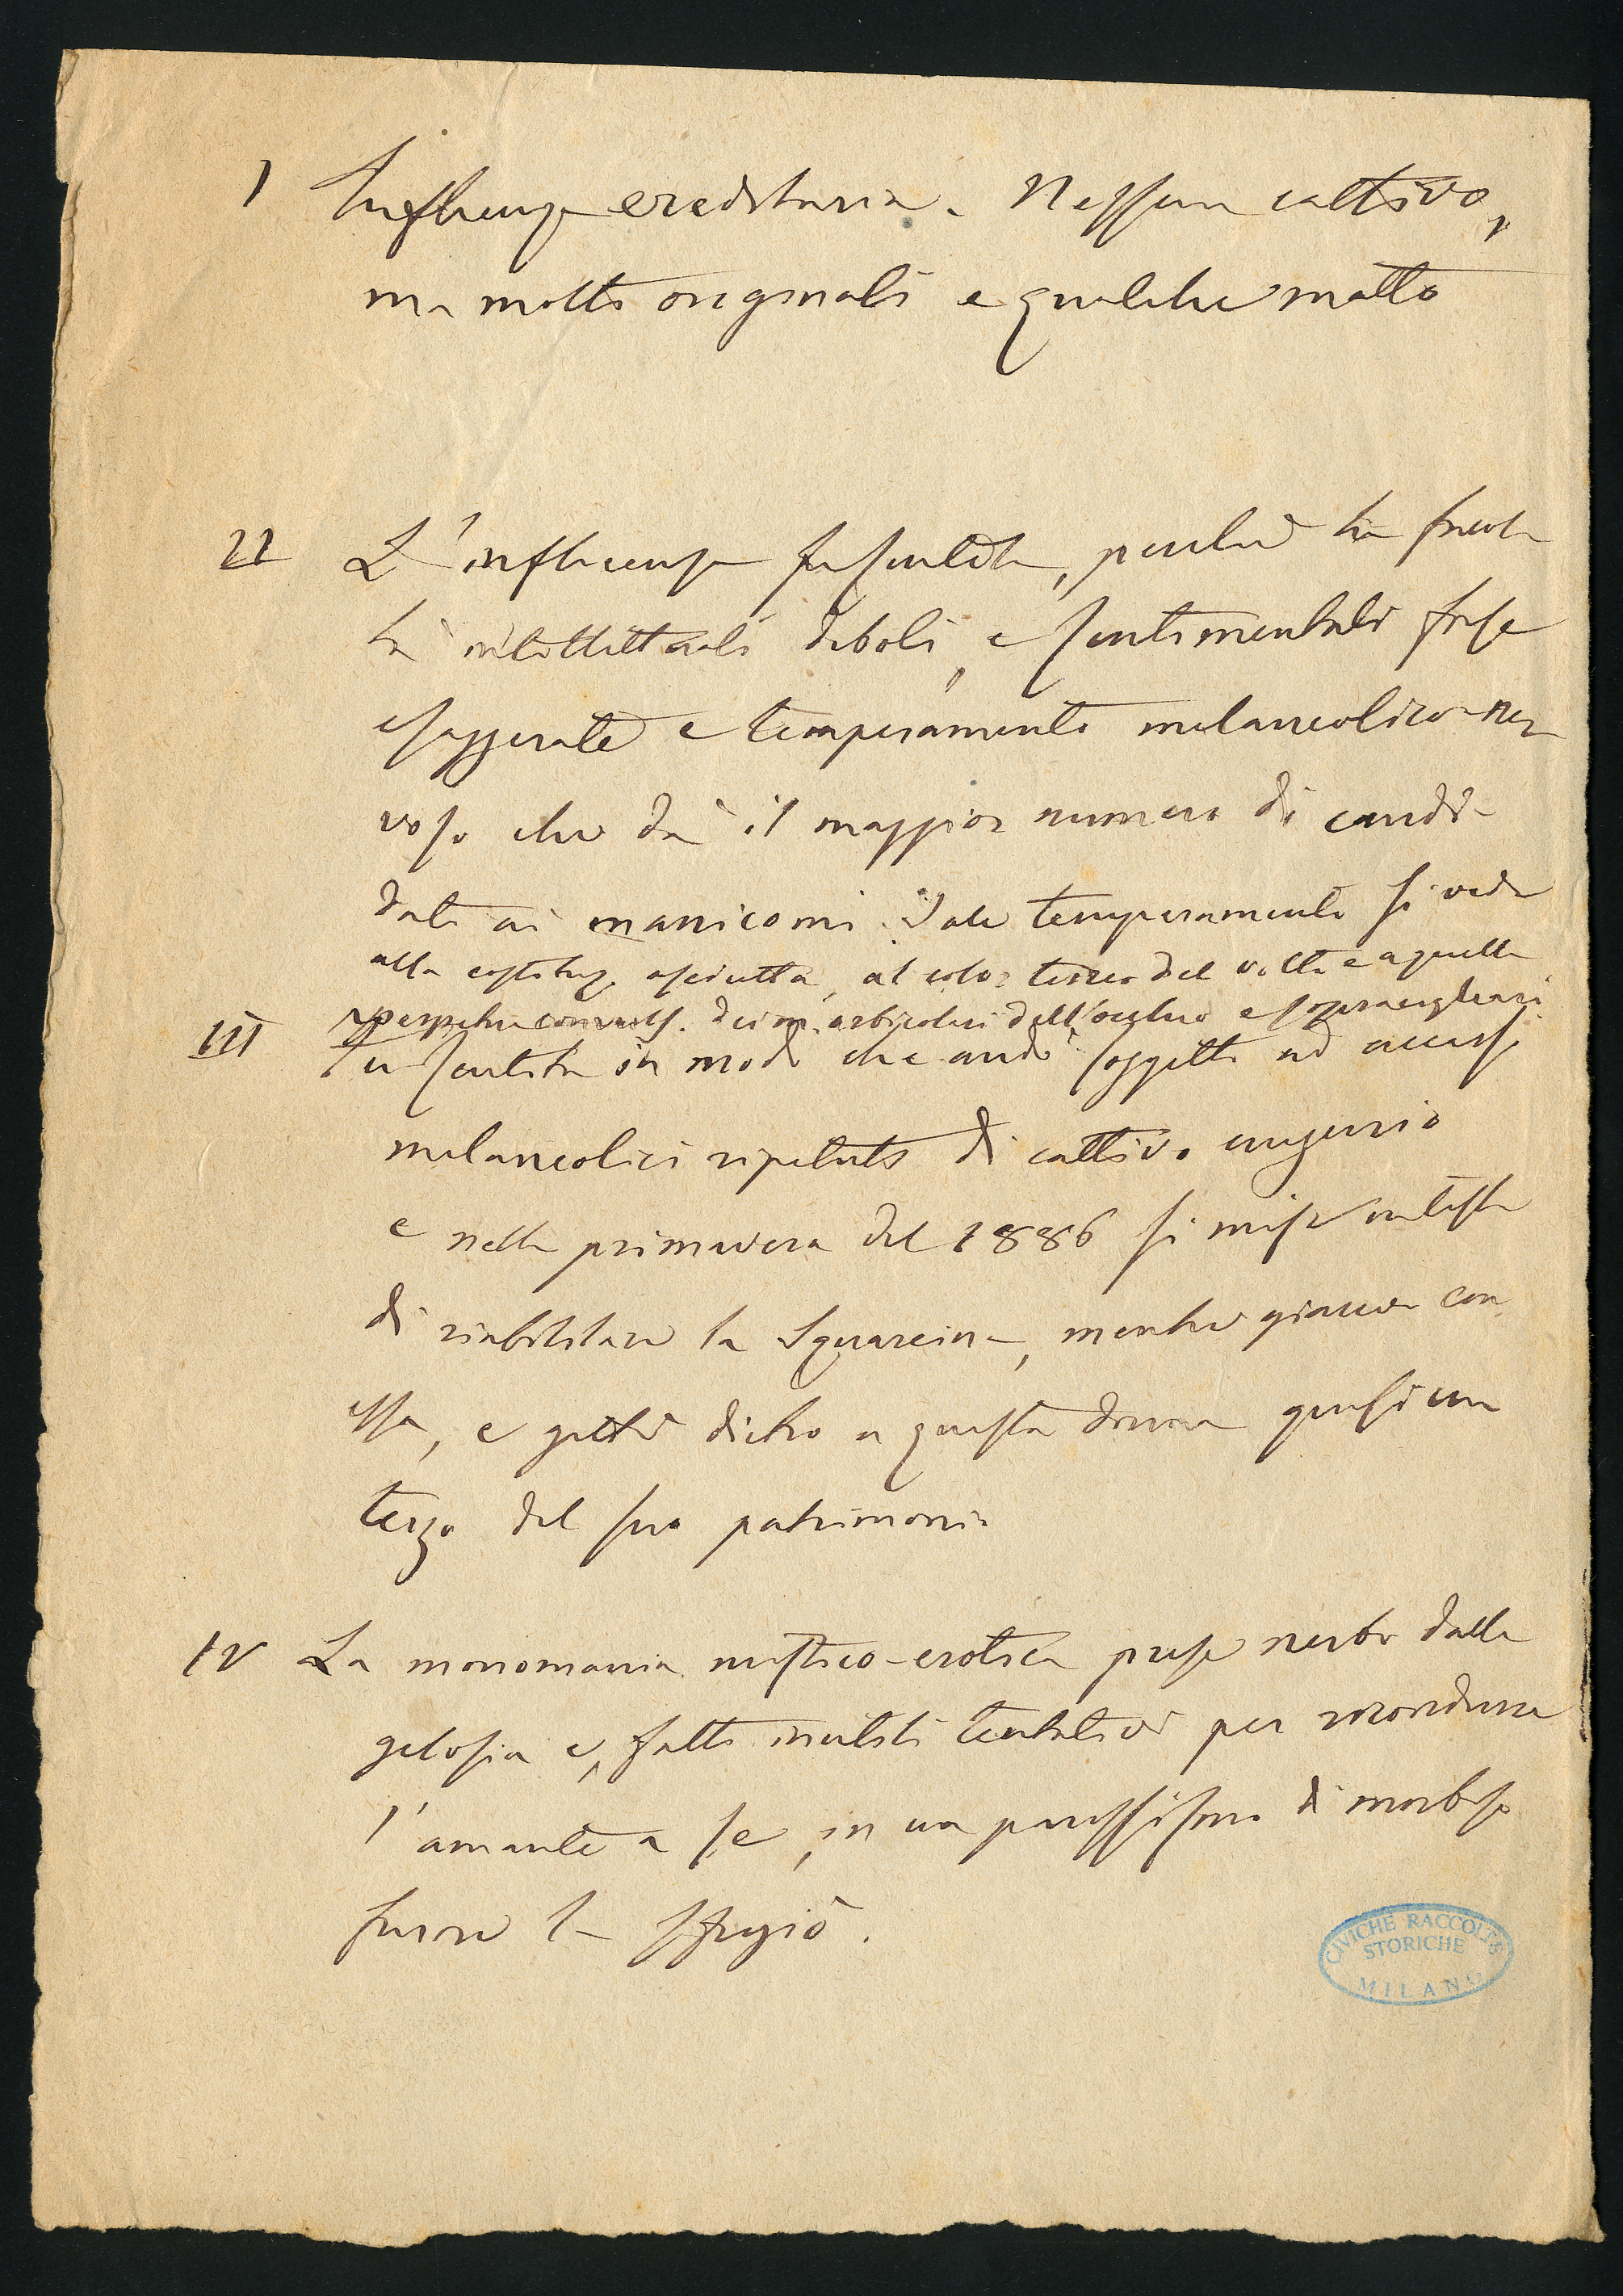 I Influenza ereditaria. Nessun cattivo,
ma molti originali e qualche matto
II L'influenza fu sentita, perché ha facol
tà intellettuali deboli, e sentimentali forse
esagerate e temperamento melanconico-ner
voso che dà il maggior numero di candi-
dati ai manicomi. Tale temperamento si vede
alla costituz. asciutta, al color terreo del volto e a quella
perpetua convuls. dei m. orbicolari dell'occhio e sopraccigliari
III Fu sentita in modo che andò soggetto ad accessi
melanconici ripetuti di cattivo
e nella primavera del 1886 si mise in testa
di riabilitare la Squarcina, mentre giaceva con
essa, e gettò dietro a questa donna quasi un
terzo del suo patrimonio
IV La monomania mistico-erotica prese nerbo dalla
gelosia e, fatti inutili tentativi per ricondurre
l'amante a se, in un parossismo di morboso
furore la sfregiò.
CIVICHE RACCOLTE
STORICHE
MILANO